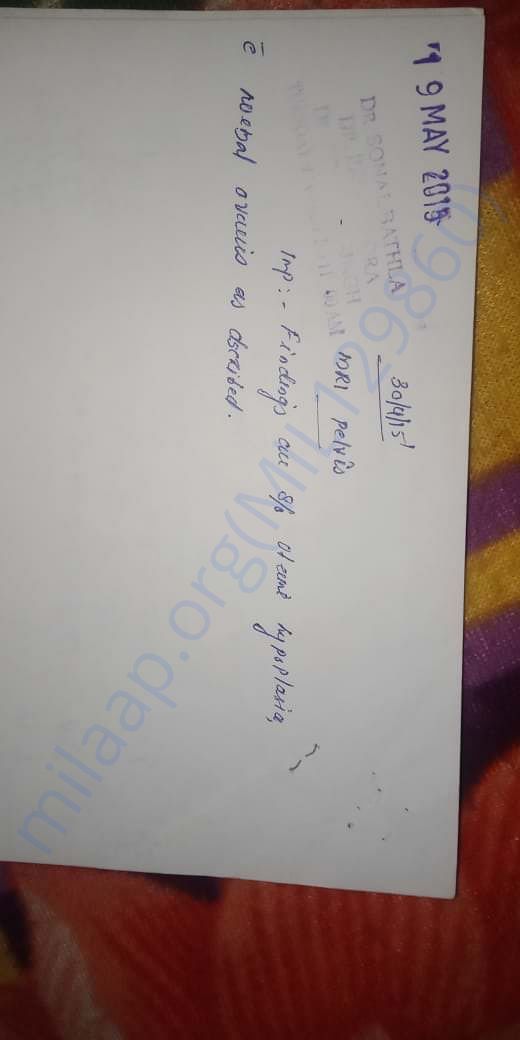 9 MAY 2015
DR SONAL BATHLA
30/4/15
MRI pelvis
Imp:- Findings are s/o uterine hypoplasia,
c̄ normal ovaries as described.
milaap.org(MIL129860)